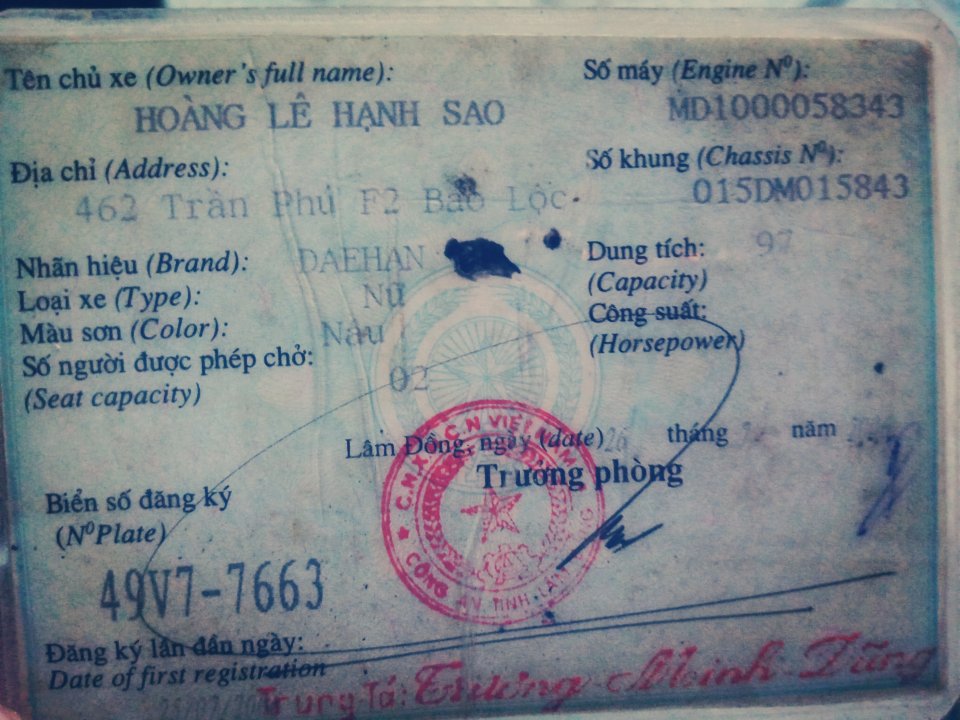 Tên chủ xe (Owner's full name):
HOÀNG LÊ HẠNH SAO
Số máy (Engine Nº):
MD1000058343
Địa chỉ (Address):
462 Trần Phú F2 Bảo Lộc.
Số khung (Chassis Nº):
015DM015843
Nhãn hiệu (Brand): DAEHAN
Loại xe (Type): Nữ
Màu sơn (Color): Nâu
Số người được phép chở: 02
(Seat capacity)
Dung tích: 97
(Capacity)
Công suất:
(Horsepower)
Lâm Đồng, ngày (date) 26 tháng năm
Trưởng phòng
C.H.X.H.C.N VIỆT NAM
CÔNG AN TỈNH LÂM ĐỒNG
Biển số đăng ký
(NºPlate)
49V7-7663
Đăng ký lần đầu ngày:
Date of first registration
Trung Tá: Trương Minh Dũng